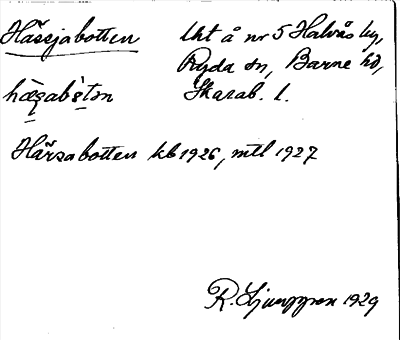 Hässjabotten lht å nr 5 Halvås by,
Ryda sn, Barne hd,
Skarab. l.
Härsabotten kb 1926, mtl 1927
R. Ljunggren 1929